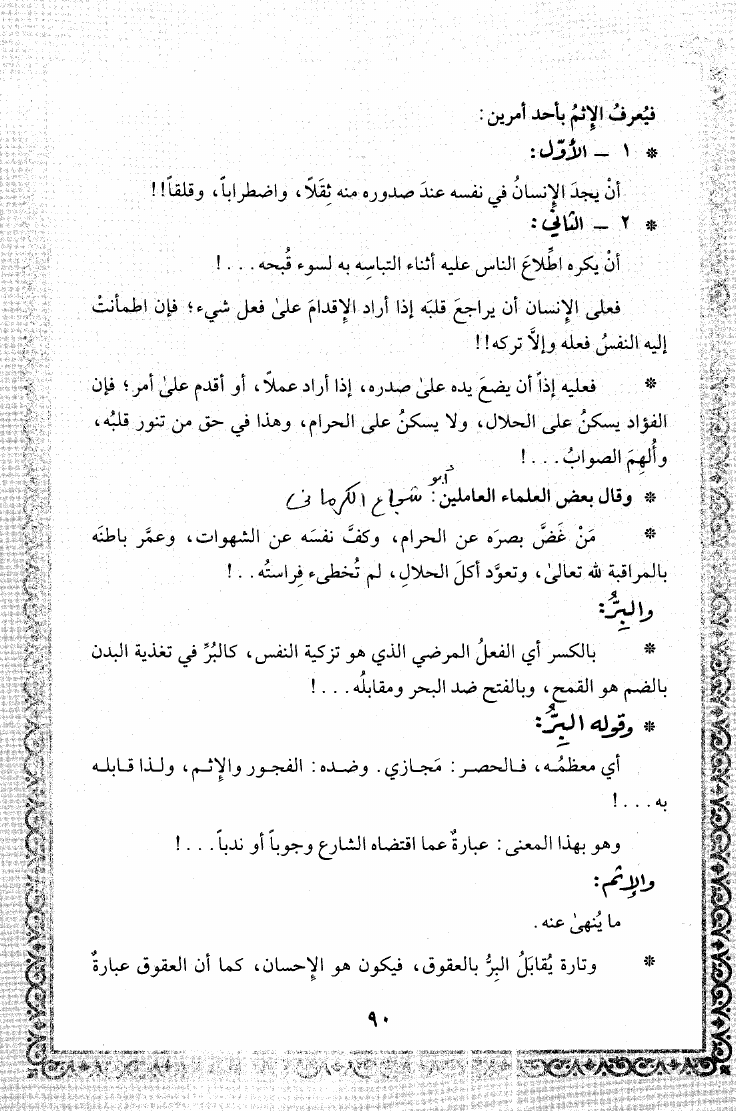 فيُعرفُ الإِثمُ بأحد أمرين:
* ١ - الأوّل:
أنْ يجدَ الإِنسانُ في نفسه عندَ صدوره منه ثِقَلًا، واضطراباً، وقلقاً!!
* ٢ - الثاني:
أنْ يكره اطِّلاعَ الناس عليه أثناء التباسِه به لسوء قُبحه...!
فعلى الإِنسان أن يراجعَ قلبَه إذا أراد الإِقدامَ علىٰ فعل شيء؛ فإن اطمأنتْ
إليه النفسُ فعله وإلاَّ تركه!!
* فعليه إذاً أن يضعَ يده علىٰ صدره، إذا أراد عملًا، أو أقدم علىٰ أمر؛ فإن
الفؤاد يسكنُ على الحلال، ولا يسكنُ على الحرام، وهذا في حق من تنور قلبُه،
وأُلهِمَ الصوابُ...!
* وقال بعض العلماء العاملين: أبو شجاع الكرماني
* مَنْ غَضَّ بصرَه عن الحرام، وكفَّ نفسَه عن الشهوات، وعمَّر باطنَه
بالمراقبة لله تعالىٰ، وتعوَّد أكلَ الحلالِ، لم تُخطىء فِراستُه..!
والبِرُّ:
* بالكسر أي الفعلُ المرضي الذي هو تزكية النفس، كالبُرِّ في تغذية البدن
بالضم هو القمح، وبالفتح ضد البحر ومقابلُه...!
* وقوله البِرُّ:
أي معظمُـه، فـالحصـر: مَجـازي. وضـده: الفجـور والإِثـم، ولـذا قـابلـه
به...!
وهو بهذا المعنى: عبارةٌ عما اقتضاه الشارع وجوباً أو ندباً...!
والإِثم:
ما يُنهىٰ عنه.
* وتارة يُقابَلُ البِرُّ بالعقوق، فيكون هو الإِحسان، كما أن العقوق عبارةٌ
٩٠